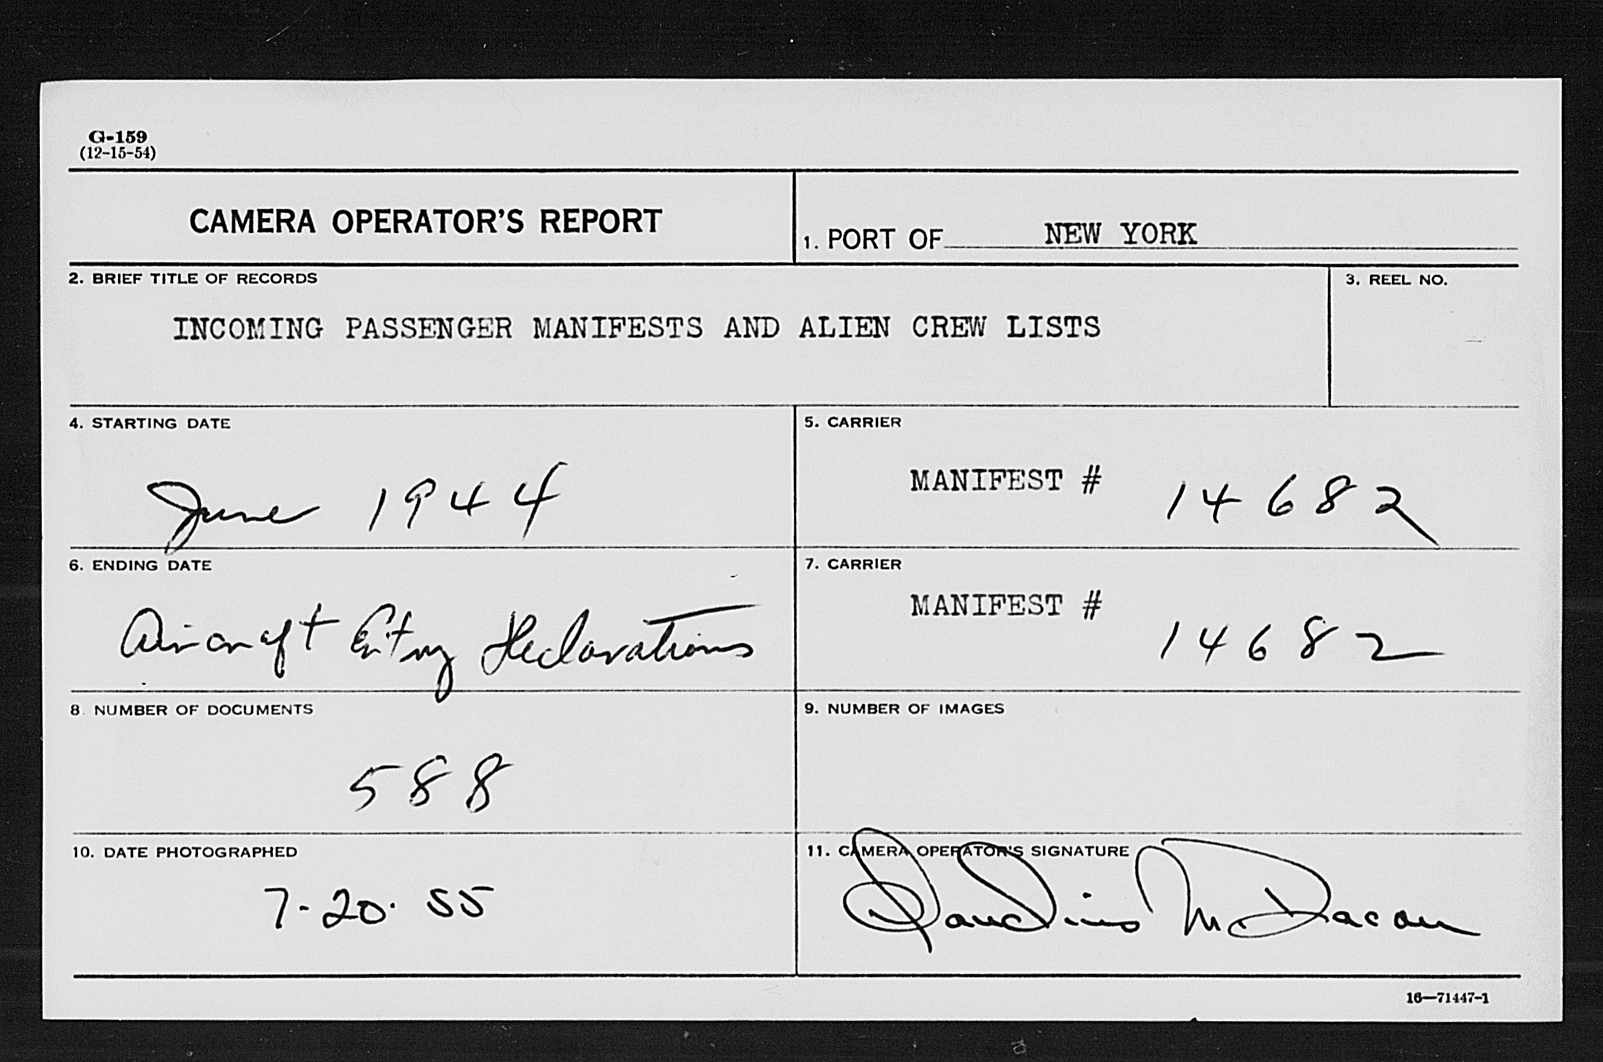 G-159
(12-15-54)
CAMERA OPERATOR'S REPORT
1. PORT OF NEW YORK
2. BRIEF TITLE OF RECORDS
3. REEL NO.
INCOMING PASSENGER MANIFESTS AND ALIEN CREW LISTS
4. STARTING DATE
5. CARRIER
June 1944
MANIFEST # 14682
6. ENDING DATE
7. CARRIER
Aircraft Entry Declarations
MANIFEST # 14682
8. NUMBER OF DOCUMENTS
9. NUMBER OF IMAGES
588
10. DATE PHOTOGRAPHED
11. CAMERA OPERATOR'S SIGNATURE
7-20-55
16—71447-1